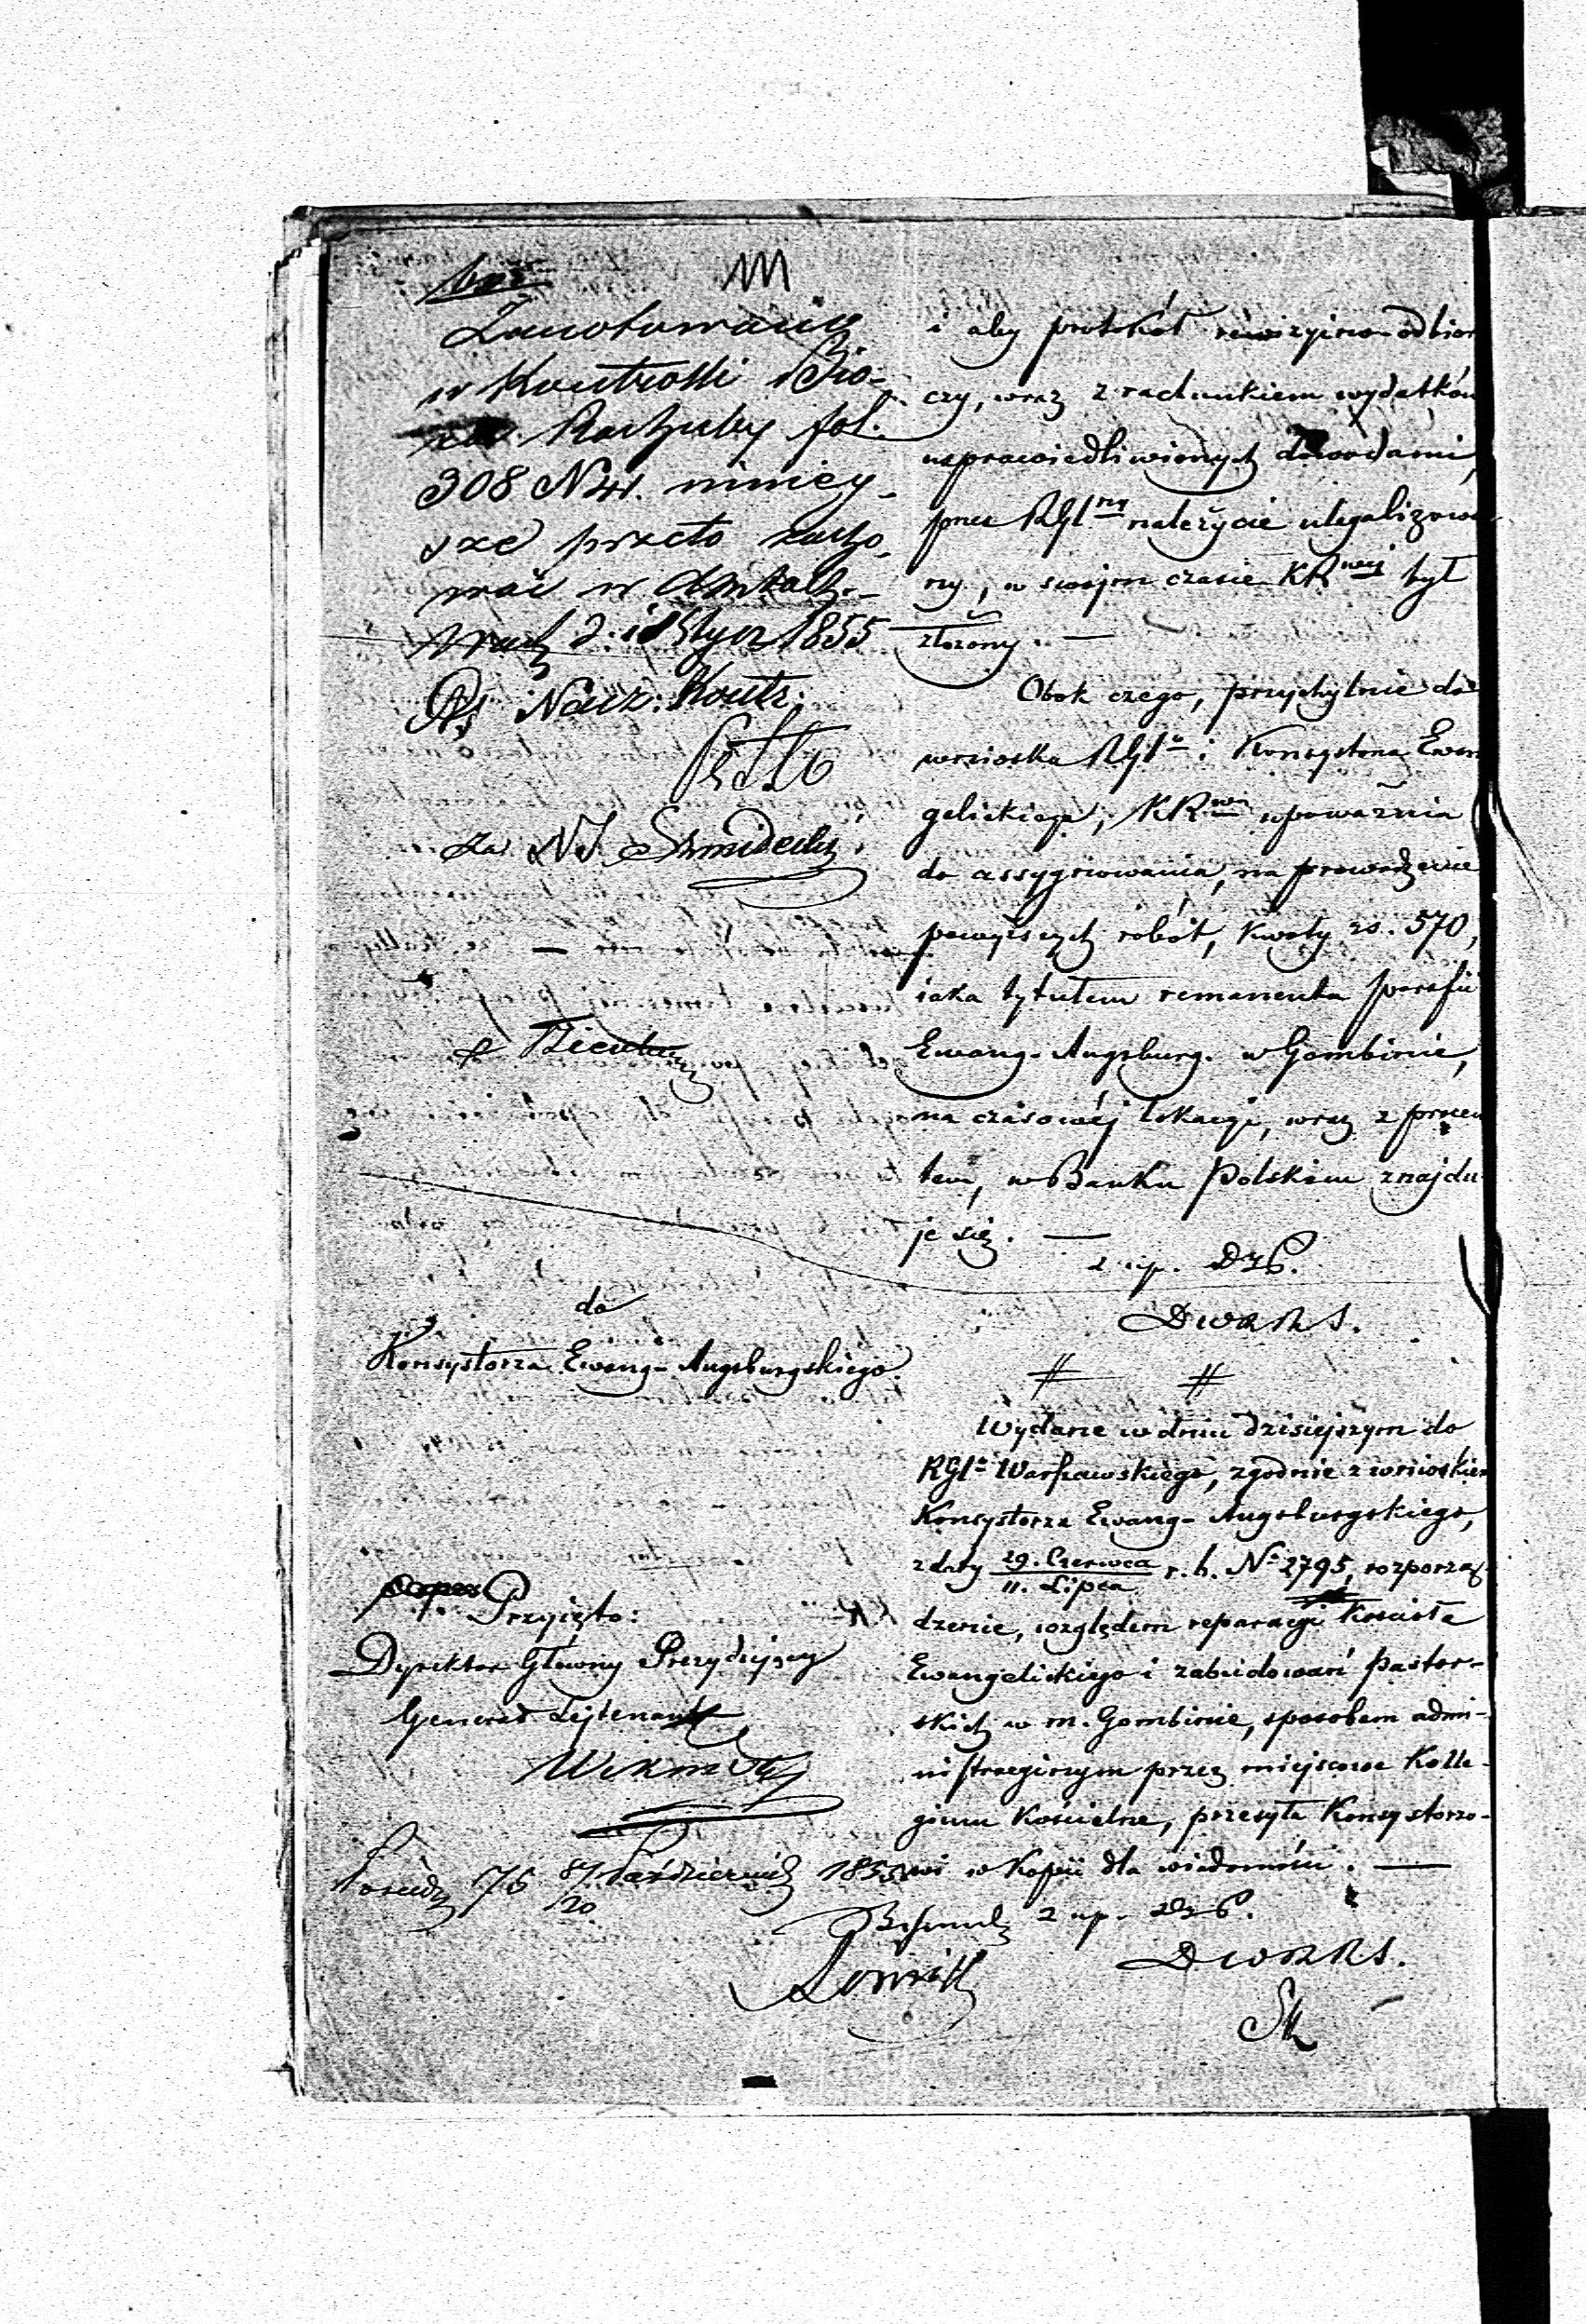 Zanotowano
w Kontrolli
Rachuby fol.
308 N 41. niniey-
sze przeto zacho-
wać w Aktach.
d. 18 Stycz 1855
Nacz. Kontr.
za NS.
do
Konsystorza Ewang-Augsburgskiego.
Przyięto:
Dyrektor Główny Prezydujący
Generał Lejtenant
76 8/20 Październik 1855
i aby protokół rewizyino-odbior
czy, wraz z rachunkiem wydatków
usprawiedliwionych dowodami,
przez RGlny należycie ulegalizowa-
ny, w swojm czasie KRwej był
złożony. —
Obok czego, przychylnie do
wniosku RGlo i Konsystorza Ewan
gelickiego, KRwa upoważnia
do assygnowania, na prowadzenie
powyższych robót, kwoty rs. 570,
iaka tytułem remanentu parafii
Ewang-Augsburg. w Gombinie,
na czasowéj lokacyi, wraz z procen
tem, w Banku Polskim znajdu
je się. —
z up. DGP.
DWRRS.
# #
Wydane w dniu dzisiejszym do
RGlo Warszawskiego, zgodnie z wnioskiem
Konsystorza Ewang-Augsburgskiego,
z daty 29. Czerwca / 11. Lipca r. b. No 2795, rozporzą-
dzenie, względem reparacyi Kościoła
Ewangelickiego i zabudowań pastor-
skich w m. Gombinie, sposobem admi-
nistracyinym przez miejscowe Kolle-
gium Kościelne, przesyła Konsystorzo-
wi w Kopii dla wiadomości. —
z up. DGP.
DWRRS.